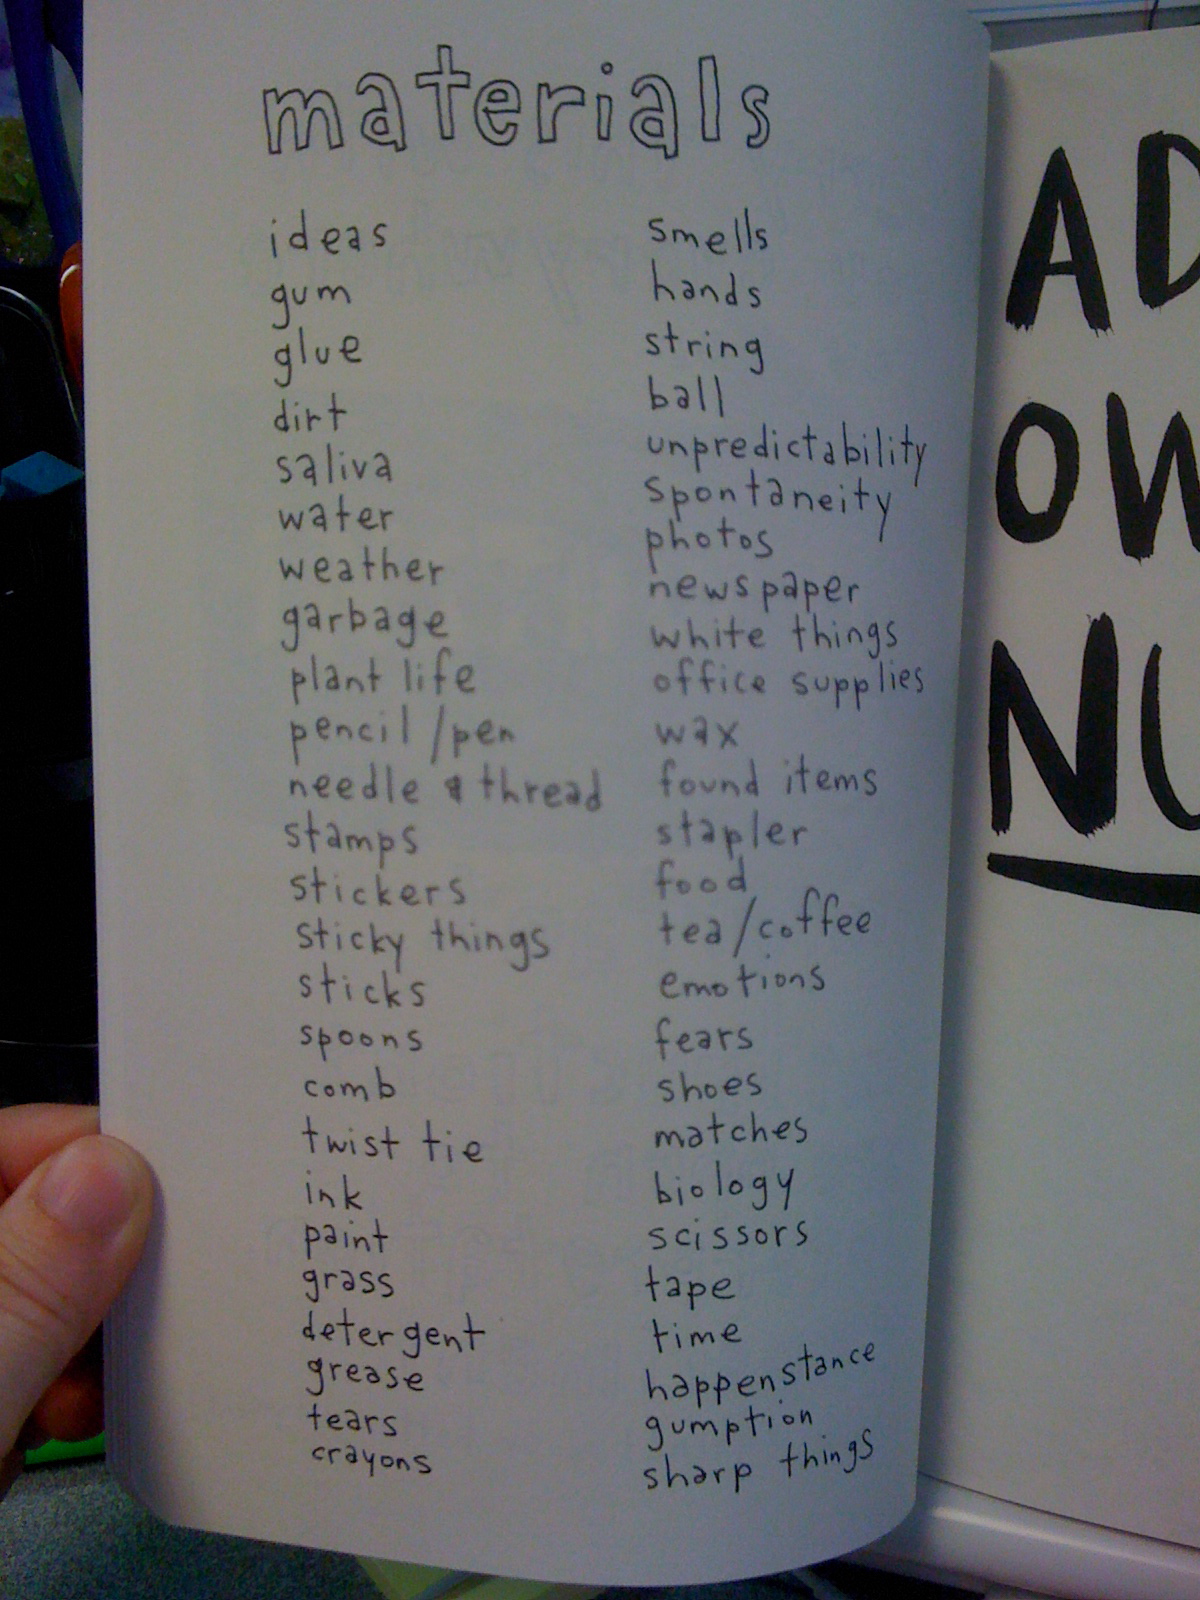 materials
ideas
gum
glue
dirt
saliva
water
weather
garbage
plant life
pencil/pen
needle & thread
stamps
stickers
sticky things
sticks
spoons
comb
twist tie
ink
paint
grass
detergent
grease
tears
crayons
smells
hands
string
ball
unpredictability
spontaneity
photos
newspaper
white things
office supplies
wax
found items
stapler
food
tea/coffee
emotions
fears
shoes
matches
biology
scissors
tape
time
happenstance
gumption
sharp things
AD